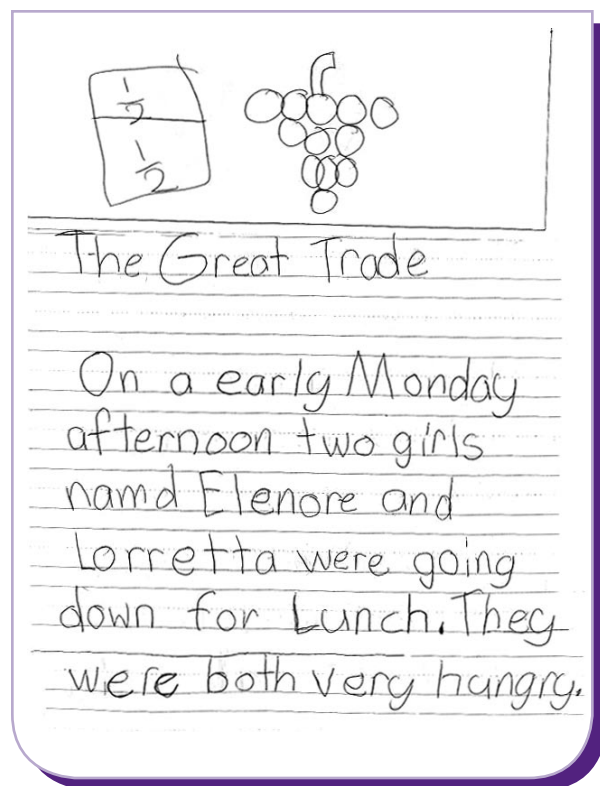 1/2
1/2
The Great Trade
On a early Monday
afternoon two girls
namd Elenore and
Lorretta were going
down for Lunch. They
were both very hungry.